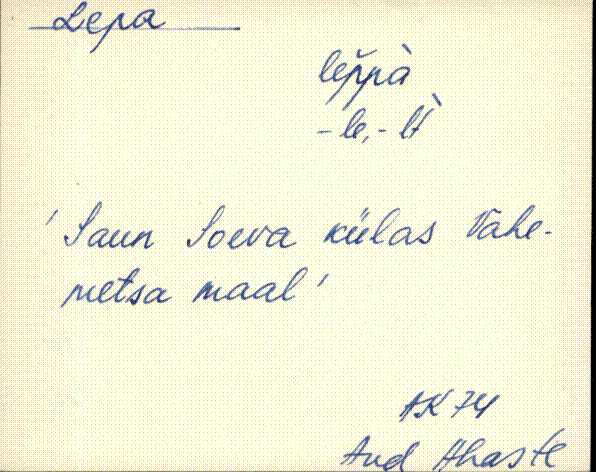 Lepa
lĕppà
-le, -lt̀
'Saun Soeva külas Vahe-
metsa maal'
AK 74
And Ahaste